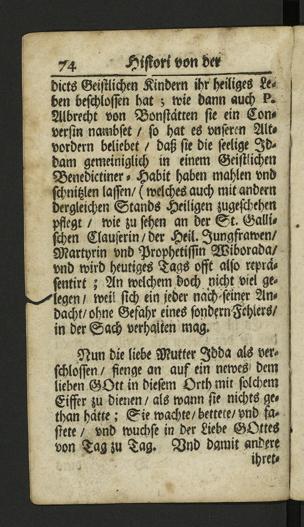 74 Histori von der
dicts Geistlichen Kindern ihr heiliges Le-
ben beschlossen hat ; wie dann auch P.
Albrecht von Bonstätten sie ein Con-
versin nambset / so hat es vnseren Alt-
vordern beliebet / daß sie die seelige Id-
dam gemeiniglich in einem Geistlichen
Benedictiner-Habit haben mahlen vnd
schnitzlen lassen / ( welches auch mit andern
dergleichen Stands Heiligen zugeschehen
pflegt / wie zu sehen an der St. Galli-
schen Clauserin / der Heil. Jungfrawen /
Martyrin vnd Prophetissin Wiborada /
vnd wird heutiges Tags offt also reprä-
sentirt ; An welchem doch nicht viel ge-
legen / weil sich ein jeder nach seiner An-
dacht / ohne Gefahr eines sondern Fehlers /
in der Sach verhalten mag.
Nun die liebe Mutter Idda als ver-
schlossen / fienge an auf ein newes dem
lieben GOtt in diesem Orth mit solchem
Eiffer zu dienen / als wann sie nichts ge-
than hätte ; Sie wachte / bettete / vnd fa-
stete / vnd wuchse in der Liebe GOttes
von Tag zu Tag. Vnd damit andere
ihret-